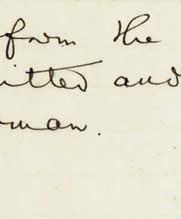 form the
itted and
man.